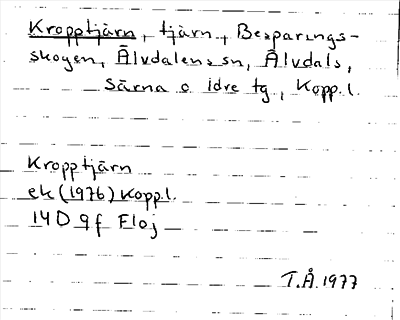 Kropptjärn, tjärn, Besparings-
skogen, Älvdalens sn, Älvdals,
Särna o Idre tg, Kopp.l.
Kropptjärn
ek (1976) Kopp.l.
14D 9f Floj
T.Å. 1977